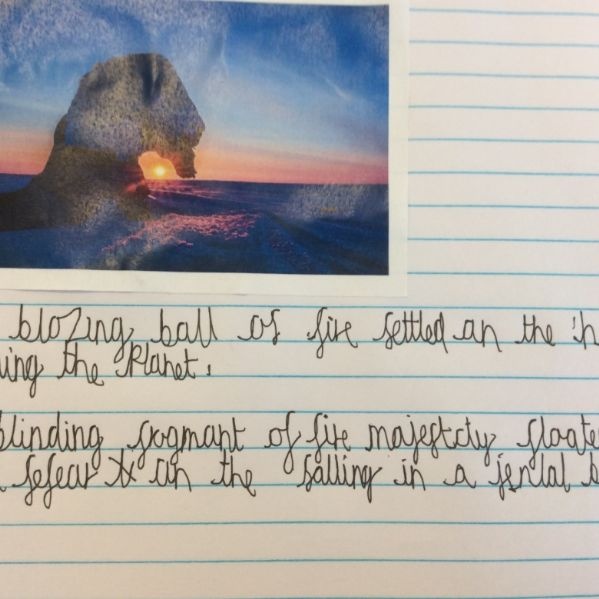 blozing ball of fire settled on the h
ing the Planet.
blinding fragment of fire majestcly floate
in the falling in a